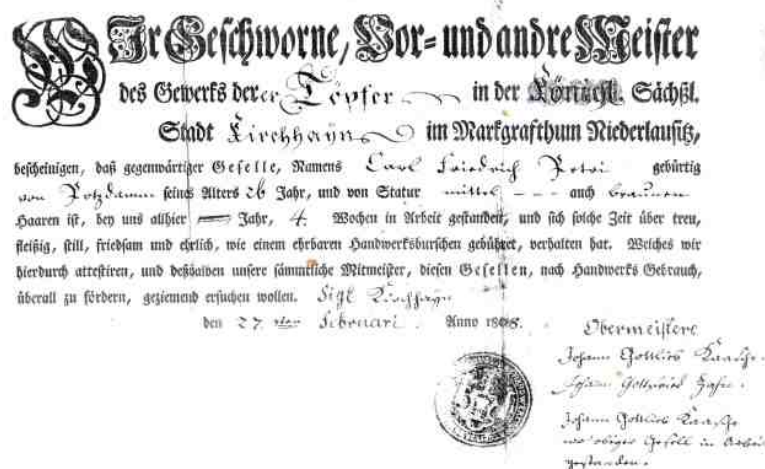 Wir Geschworne, Vor- und andre Meister
des Gewerks derer Töpfer in der Königl. Sächßl.
Stadt Kirchhayn im Markgrafthum Niederlausitz,
bescheinigen, daß gegenwärtiger Geselle, Namens Carl Friedrich Petri gebürtig
von Potzdamm seines Alters 26 Jahr, und von Statur mittel - - - auch braunen
Haaren ist, bey uns allhier Jahr, 4. Wochen in Arbeit gestanden, und sich solche Zeit über treu,
fleißig, still, friedsam und ehrlich, wie einem ehrbaren Handwerksburschen gebühret, verhalten hat. Welches wir
hierdurch attestiren, und deßhalben unsere sämmtliche Mitmeister, diesen Gesellen, nach Handwerks Gebrauch,
überall zu fördern, geziemend ersuchen wollen. Sigl Kirchhayn
den 27 Februari. Anno 1808.
Obermeistere
Johann Gottlieb
Johann Gottfried
Johann Gottlieb
wo obiger Gesell in Arbeit
gestanden.